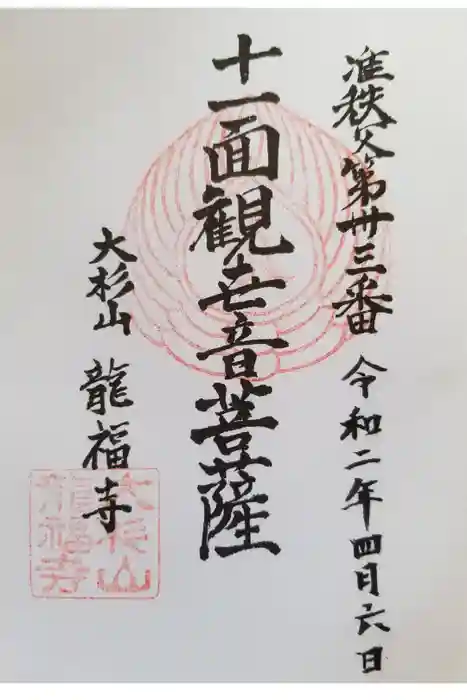 准秩父第卅三番 令和二年四月六日
十一面觀世音菩薩
大杉山 龍福寺
大杉山
龍福寺